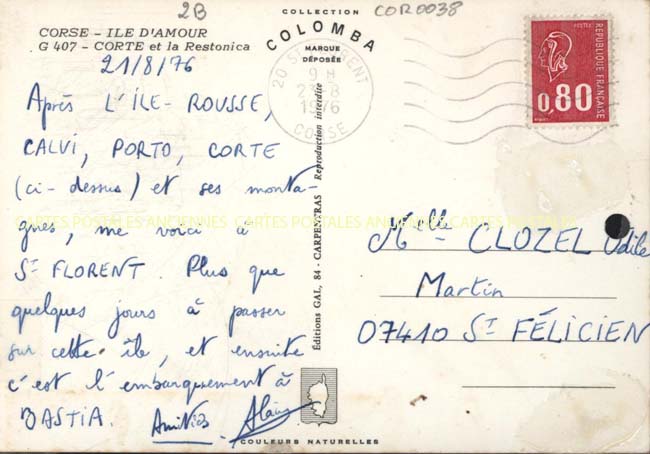 2B
COR0038
COLLECTION
COLOMBA
MARQUE
DÉPOSÉE
CORSE - ILE D'AMOUR
G 407 - CORTE et la Restonica
21/8/76
Après L'ÎLE-ROUSSE,
CALVI, PORTO, CORTE
(ci-dessus) et ses monta-
gnes, me voici à
ST FLORENT. Plus que
quelques jours à passer
sur cette île, et ensuite
c'est l'embarquement à
BASTIA. Amitiés Alain
Éditions GAL, 84 - CARPENTRAS Reproduction interdite
COULEURS NATURELLES
9 H
23-8
1976
CORSE
POSTES
RÉPUBLIQUE FRANÇAISE
0,80
Melle CLOZEL Odile
Martin
07410 ST FÉLICIEN
CARTES POSTALES ANCIENNES CARTES POSTALES ANCIENNES CARTES POSTALES ANCIENNES